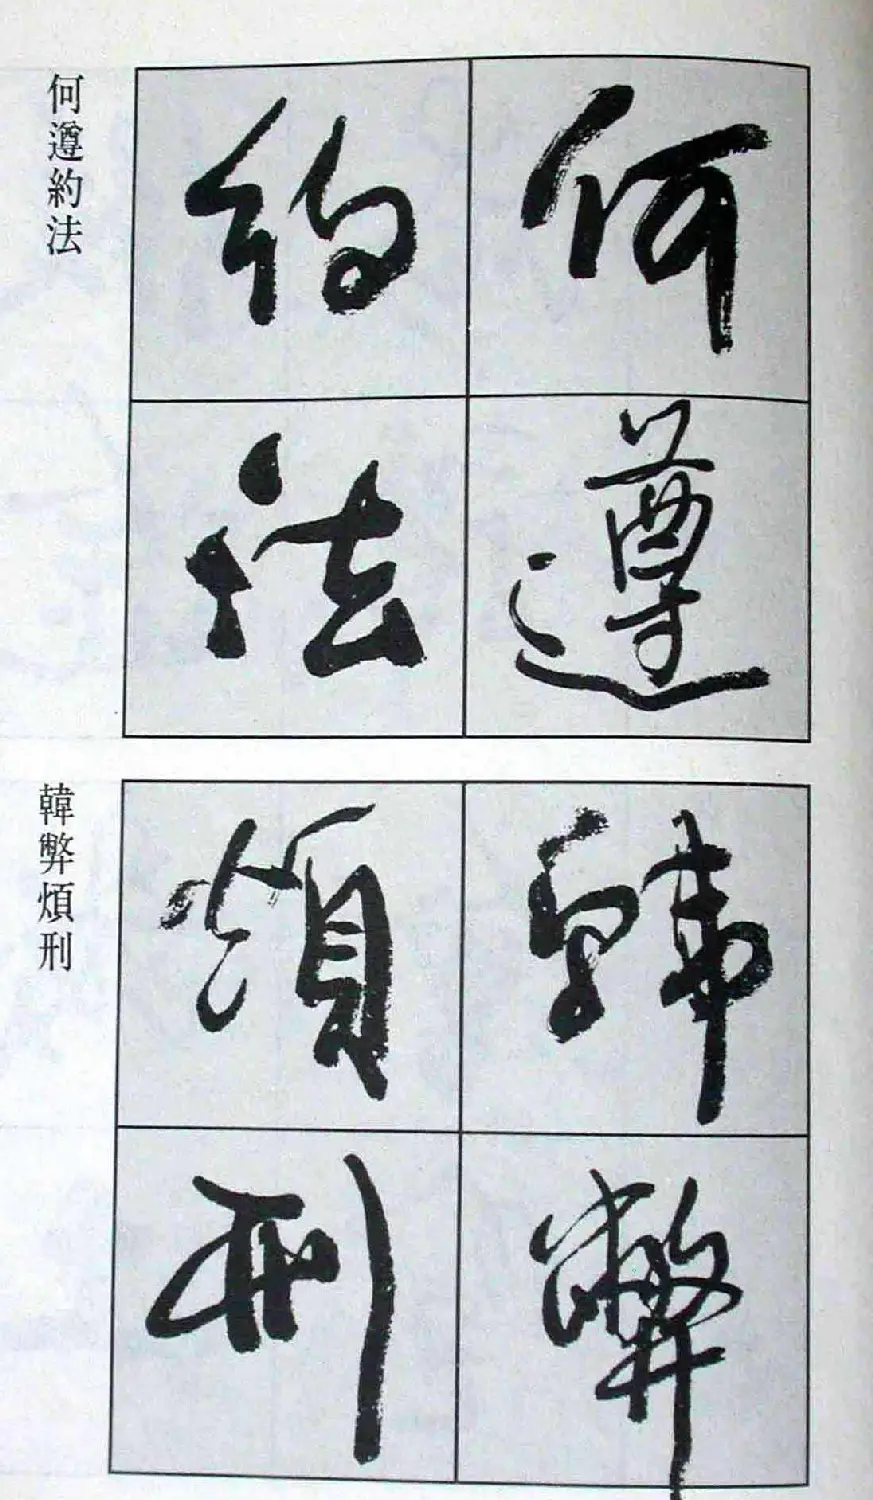 何遵約法
何遵
約法
韓弊煩刑
韓弊
煩刑